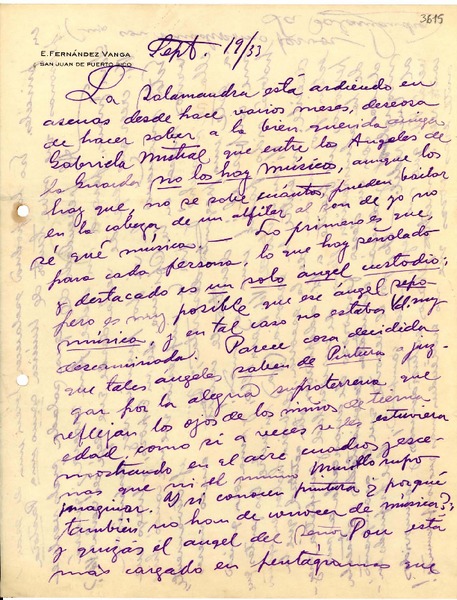 3615
E. FERNÁNDEZ VANGA
SAN JUAN DE PUERTO RICO
Sept. 19/33
La Salamandra está ardiendo en
ascuas desde hace varios meses, deseosa
de hacer saber a la bien querida amiga
Gabriela Mistral que entre los Angeles de
la Guarda no lo hay músico, aunque los
hay que, no se sabe cuántos pueden bailar
en la cabeza de un alfiler al son de yo no
sé qué música. — Lo primero es que,
para cada persona, lo que hay señalado
y destacado es un solo angel custodio;
pero es muy posible que ese ángel sepa
música, y en tal caso no estaba Vd. muy
descaminada. Parece cosa decidida
que tales angeles saben de Pintura a juz-
gar por la alegria supraterrena que
reflejan los ojos de los niños de tierna
edad, como si a veces se les estuviera
mostrando en el aire cuadros y esce-
nas que ni el mismo Murillo supo
imaginar. Y si conocen pintura ¿porqué
también no han de conocer de música?;
y quizás el angel del Señor Pou está
más cargado en pentágramas que